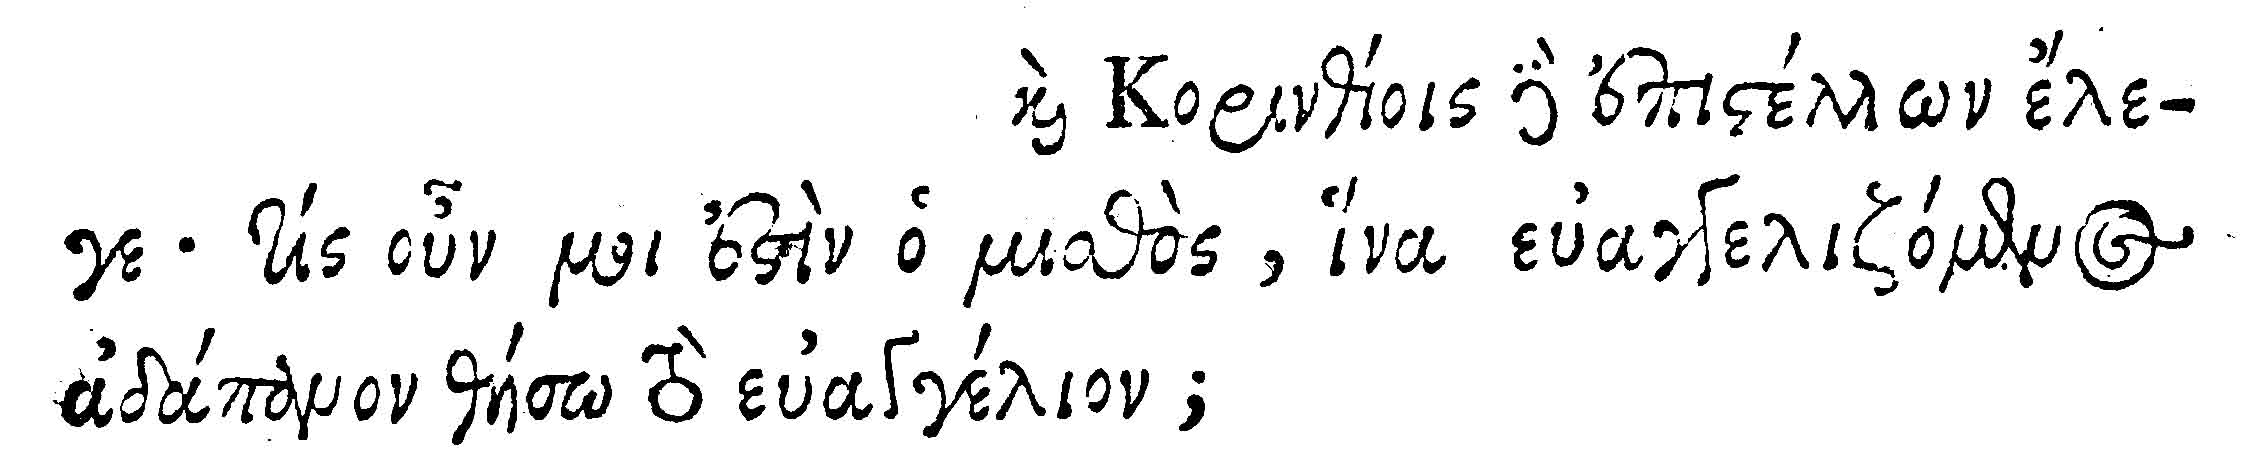 καὶ Κορινθίοις δὲ ἐπιστέλλων ἔλε-
γε· τίς οὖν μοι ἐστὶν ὁ μισθὸς, ἵνα εὐαγγελιζόμενος
ἀδάπανον θήσω τὸ εὐαγγέλιον;